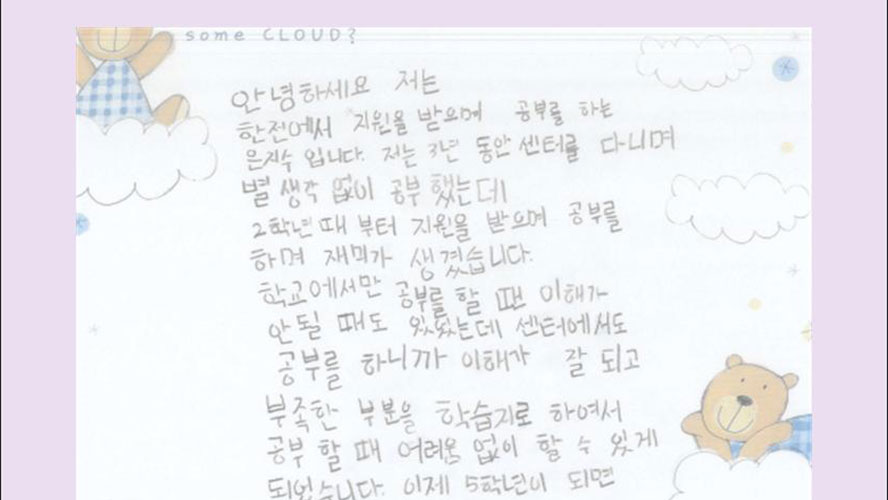 some CLOUD?
안녕하세요 저는
한전에서 지원을 받으며 공부를 하는
은지수 입니다. 저는 3년 동안 센터를 다니며
별 생각 없이 공부 했는데
2학년 때 부터 지원을 받으며 공부를
하며 재미가 생겼습니다.
학교에서만 공부를 할 땐 이해가
안될 때도 있었는데 센터에서도
공부를 하니까 이해가 잘 되고
부족한 부분을 학습지로 하여서
공부 할 때 어려움 없이 할 수 있게
되었습니다. 이제 5학년이 되면